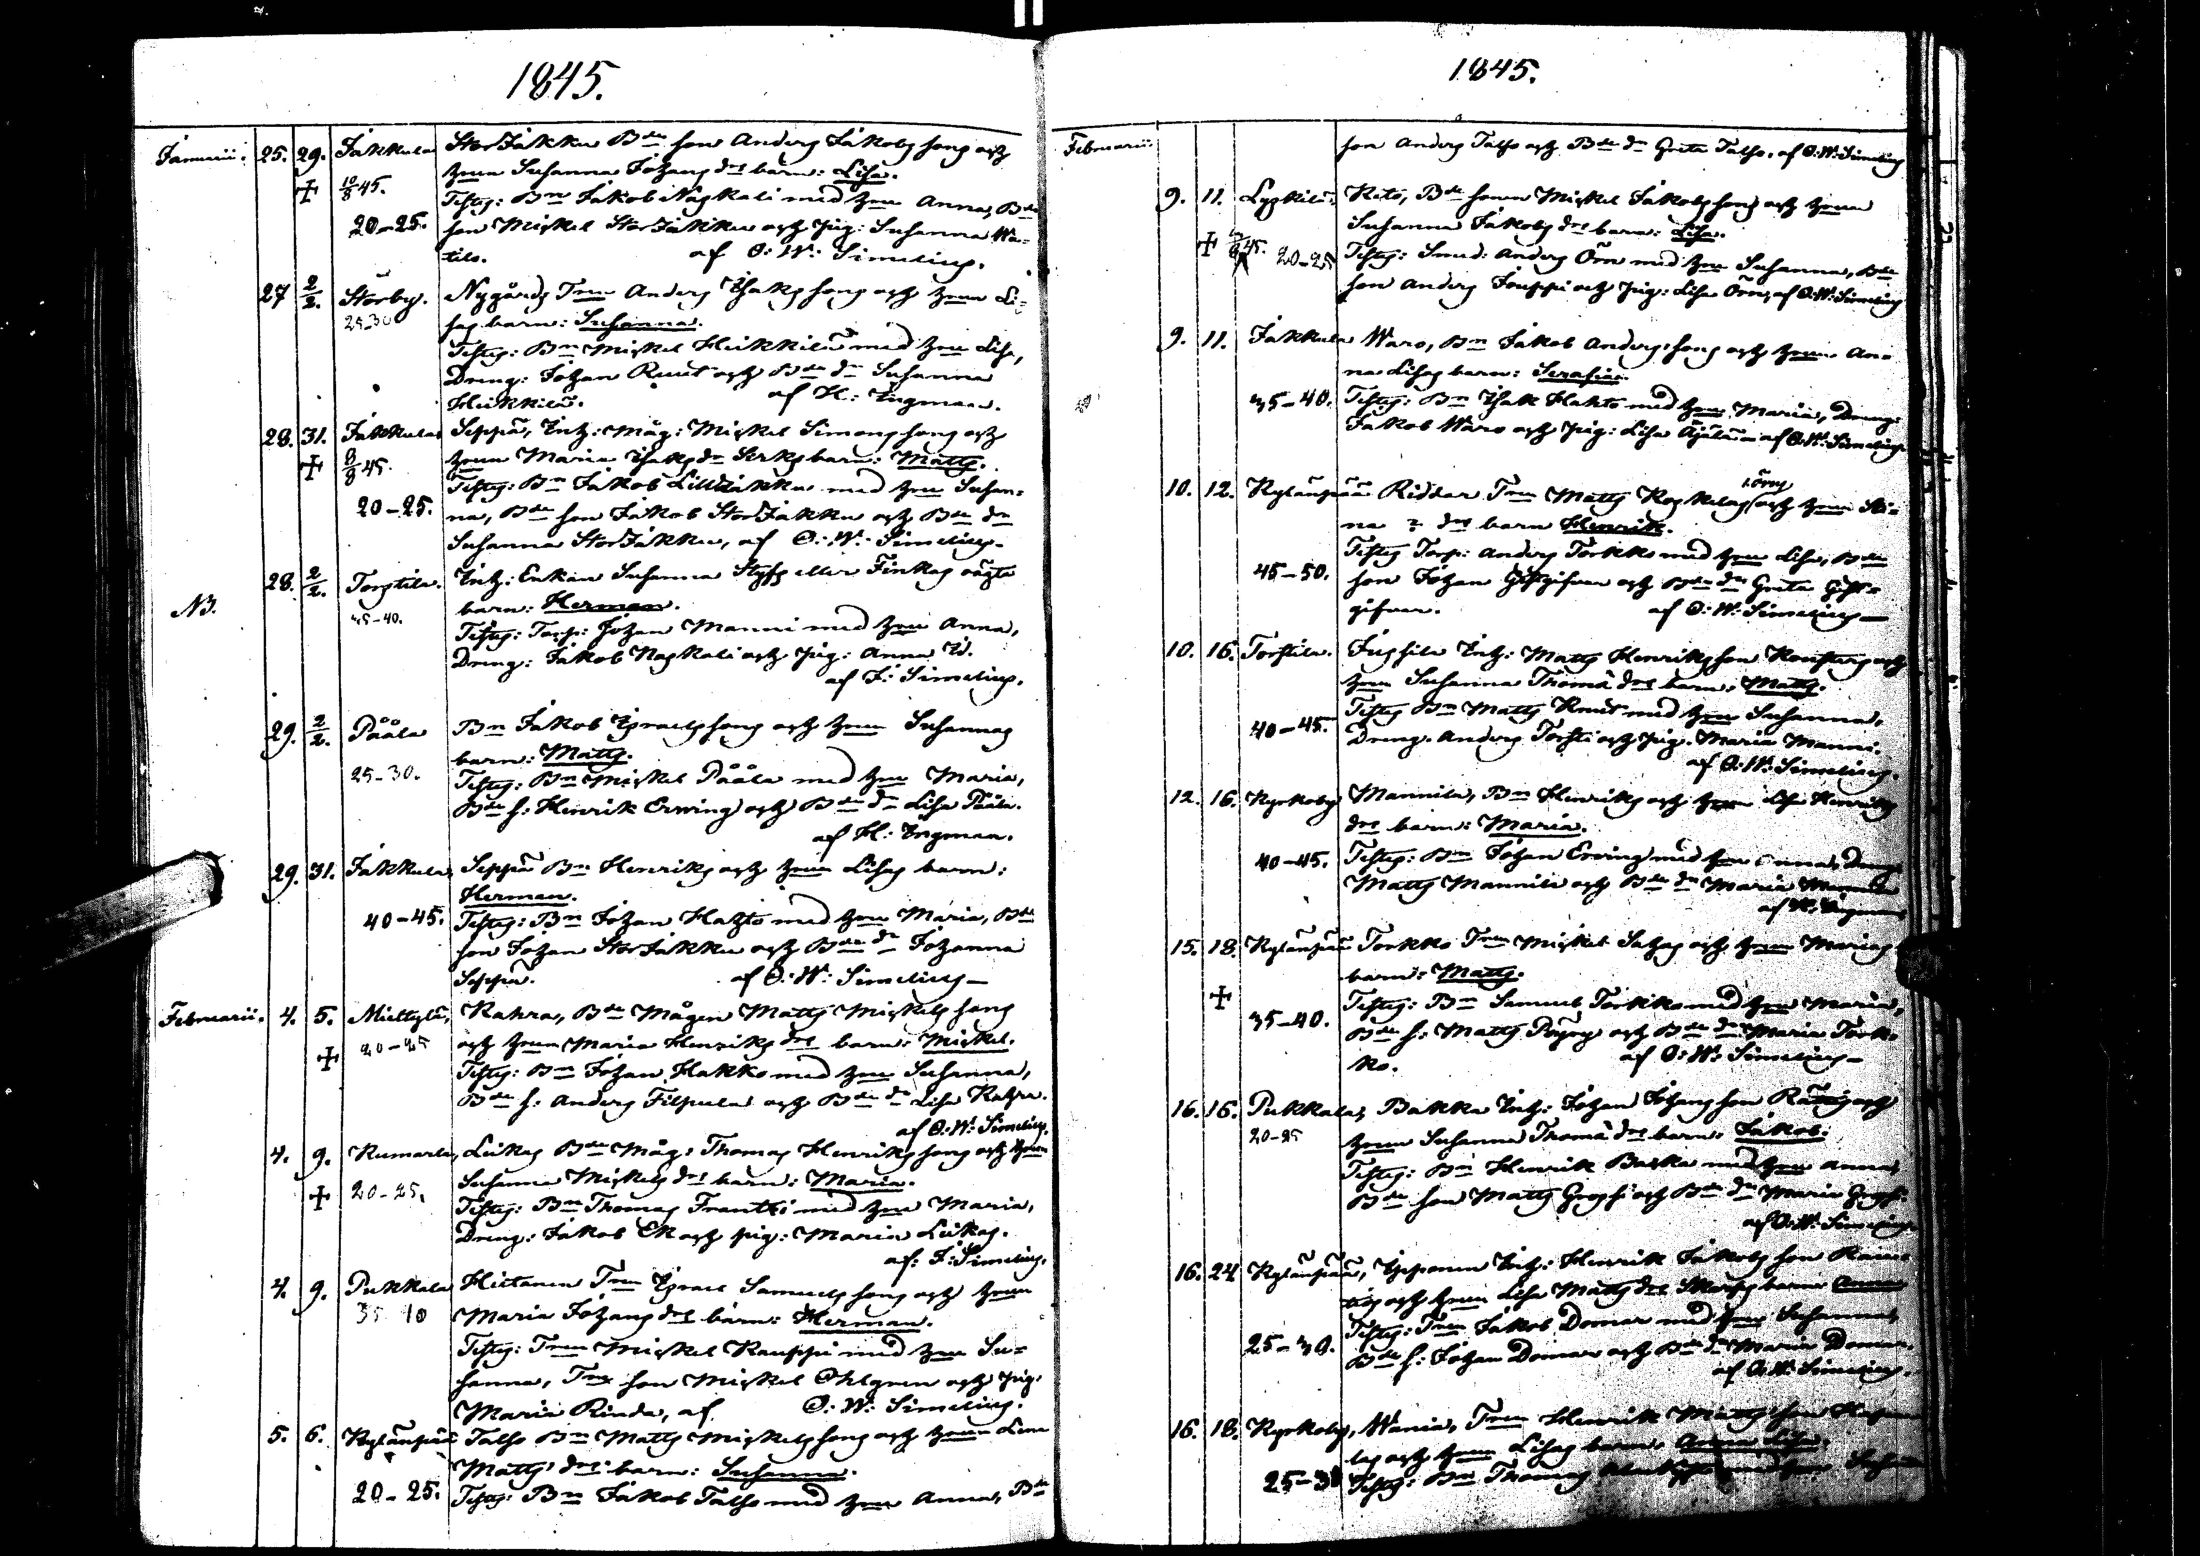 1845.
Januarii. 25. 29. Jakkula StorJakku Bde son Anders Jakobssons och
+ 10/8 45. hustrun Susanna Johansdrs barn: Lisa.
Testes: Bn Jakob Naskali med hun Anna, Bde
20-25. son Mickel StorJakku och pig: Susanna Wa-
tilo. af O: W: Simelius.
27 2/2. Storby. Nygårds Trn Anders Isakssons och hrun Li-
25-30 sas barn: Susanna.
Testes: Bn Mickel Heikkilä med hun Lisa,
Dreng: Johan Ruut och Bde dr Susanna
Heikkilä. af H: Ingman.
28. 31. Jakkula Seppä, Inh: Måg: Mickel Simonssons och
+ 8/8 45. hrun Maria Isaksdr Serks barn: Matts.
Testes: Bn Jakob LillJakku med hun Susan-
20-25. na, Bde son Jakob StorJakku och Bde dr
Susanna StorJakku, af O: W: Simelius.
NB. 28. 2/2. Torstila. Inh: Enkan Susanna Styfs eller Finkas oägta
35-40. barn: Herman.
Testes: Torp: Johan Manni med hun Anna,
Dreng: Jakob Naskali och pig: Anna W.
af F: Simelius.
29. 2/2. Pååla Bn Jakob Israelssons och hrun Susannas
barn: Matts.
25-30. Testes: Bn Mickel Pååla med hun Maria,
Bde s: Henrik Erwing och Bde dr Lisa Pååla.
af H: Ingman.
29. 31. Jakkula, Seppä Bn Henriks och hrun Lisas barn:
Herman.
40-45. Testes: Bn Johan Hahto med hun Maria, Bde
son Johan StorJakku och Bde dr Johanna
Seppä. af O: W: Simelius
Februarii. 4. 5. Miettylä, Kahra, Bde Mågen Matts Mickelssons
+ 20-25 och hrun Maria Henriksdrs barn: Mickel.
Testes: Bn Johan Hakko med hun Susanna,
Bde s: Anders Filpula och Bde dr Lisa Kahra.
af O: W: Simelius.
4. 9. Kumarla, Luikas Bde Måg: Thomas Henrikssons och hrun
+ 20-25. Susanna Mickelsdrs barn: Maria.
Testes: Bn Thomas Frantti med hun Maria,
Dreng: Jakob Ek och pig: Maria Luikas.
af: F: Simelius.
4. 9. Pukkala Hietanen Trn Israel Samuelssons och hrun
35 40 Maria Johansdrs barn: Herman.
Testes: Trn Mickel Kauppi med hun Su-
sanna, Trn son Mickel Ohlgren och pig.
Maria Rinda, af O: W: Simelius.
5. 6. Kylänpää Talso Bn Matts Mickelssons och hrun Lisa
Matts drs barn: Susanna.
20-25. Testes: Bn Jakob Talso med hun Anna, Bde
1845.
Februarii son Anders Talso och Bde dr Greta Talso, af O: W: Simelius
9. 11. Lyskilä, Keto, Bde sonen Mickel Jakobssons och hrun
Susanna Jakobsdrs barn: Lisa.
+ 45. 20-25 Testes: Smed: Anders Örn med hun Susanna, Bde
son Anders Jouppi och pig: Lisa Örn, af O: W: Simelius
9. 11. Jakkula Waro, Bn Jakob Anders: sons och hrun An-
na Lisas barn: Serafia.
35-40. Testes: Bn Isak Hahto med hun Maria, Dreng:
Jakob Waro och pig: Lisa af O: W: Simelius.
10. 12. Kylänpää Riddar Trn Matts Koskelas och hrun Sti-
na ? drs barn Henrik.
Testes Torp: Anders Torkko med hun Lisa, Bde
45-50. son Johan Gästgifvar och Bde drs Greta Gäst-
gifvar. af O: W: Simelius
10. 16. Torstila. Jussila Inh: Matts Henriksson och
hrun Susanna Thomädrs barn: Matts.
Testes Bn Matts Knut med hun Susanna,
40-45. Dreng. Anders Torsti och pig. Maria Manni.
af O: W: Simelius.
12. 16. Kyrkoby Mannila, Bn Henriks och hrun Lisa Henriks
drs barn: Maria.
40-45. Testes: Bn Johan Erving med hun Anna, Dreng
Matts Mannila och Bde dr Maria
af H. Ingman
15. 18. Kylänpää Torkko Trn Mickel och hrun Marias
barn: Matts.
+ Testes: Bn Samuel Torkko med hun Maria,
35-40. Bde s: Matts Pöyry och Bde dr Maria Tork-
ko. af O: W: Simelius
16. 16. Pukkala, Bakka Inh: Johan Johansson och
20-25 hrun Susanna Thomädrs barn: Jakob.
Testes: Bn Henrik Backa med hun Anna,
Bde son Matts och Bde dr Maria
af O: W: Simelius
16. 24 Kylänpää, Inh: Henrik Jakobsson
och hrun Lisa Mattsdrs barn Anna
Testes: Trn Jakob Domar med hun Susanna,
25-30. Bde s: Johan Domar och Bde dr Maria Domar.
af O: W: Simelius.
16. 18. Kyrkoby, Wainio, Trn Henrik Matts: son
och hrun Lisas barn. Anna Lisa.
25-30 Testes: Bn Thomas med hun